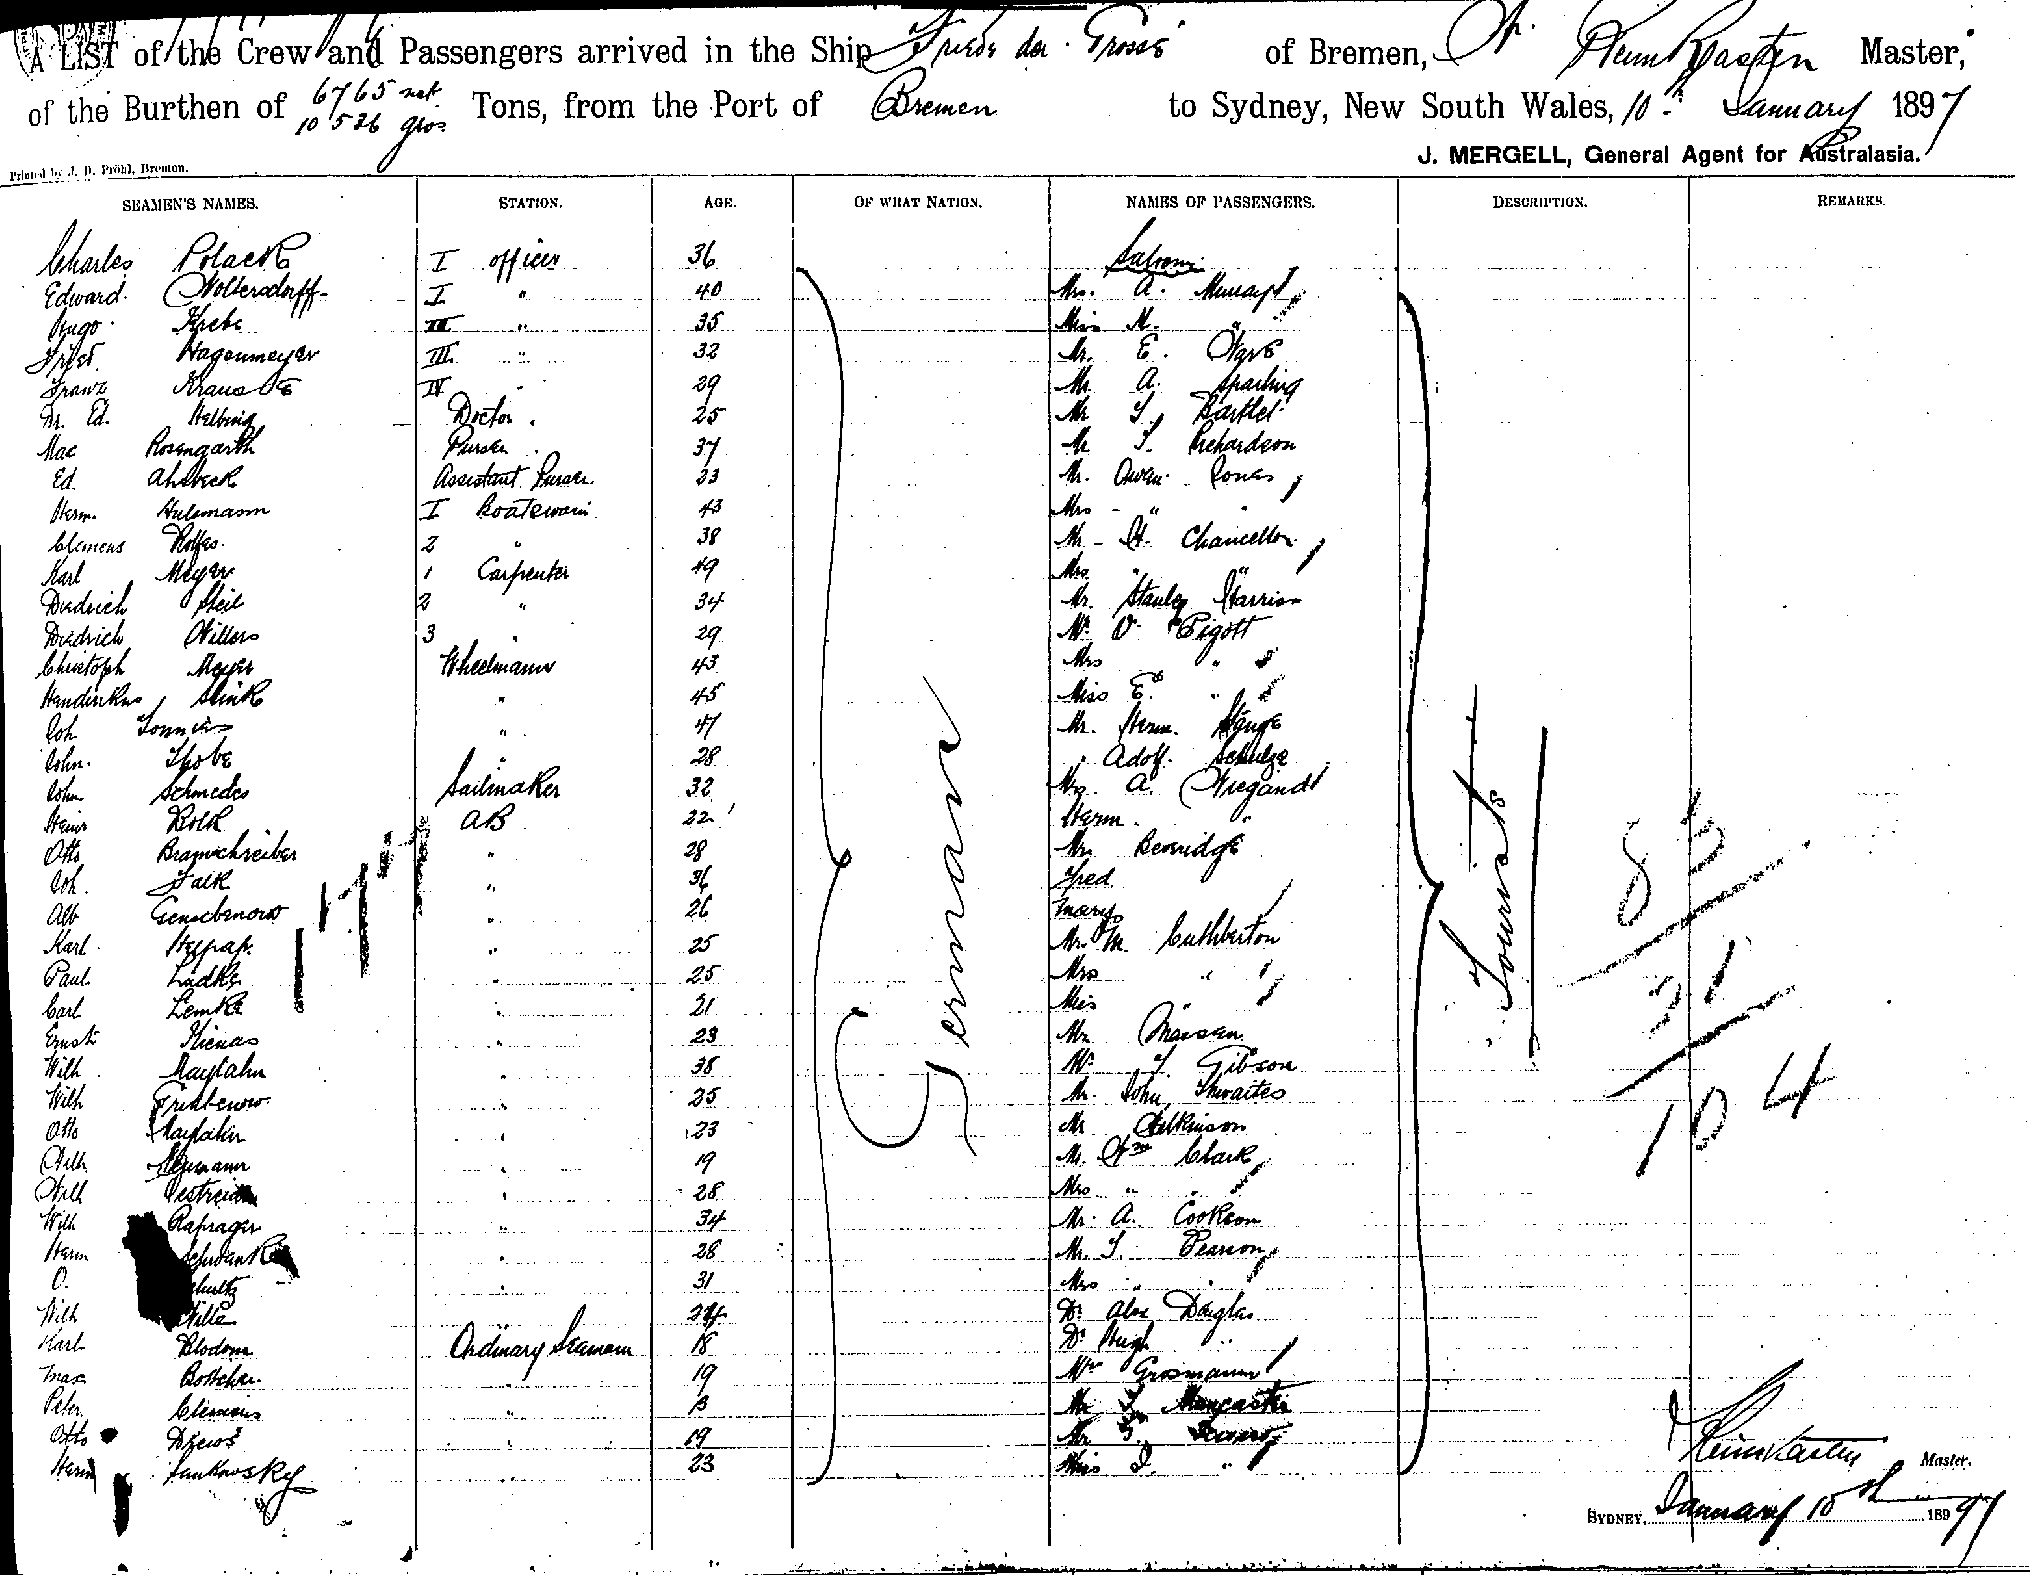 A LIST of the Crew and Passengers arrived in the Ship Friedr. der Grosse of Bremen, Master,
of the Burthen of 6765 net 10526 gros Tons, from the Port of Bremen to Sydney, New South Wales, 10th January 1897
J. MERGELL, General Agent for Australasia.
Printed by J. D. Pröhl, Bremen.
SEAMEN'S NAMES. STATION. AGE. OF WHAT NATION. NAMES OF PASSENGERS. DESCRIPTION. REMARKS.
Charles Polack I officer 36 Saloon
Edward Woltersdorff I " 40 Mrs. A. Murray
Hugo Krebs III " 35 Miss M. "
Hagenmeyer III " 32 Mr. E.
Franz Krause IV " 29 Mr A. Sparling
Dr. Ed. Helbing Doctor 25 Mr Barthel
Max Rosengarth Purser 37 Mr Richardson
Ed Ahsbeck Assistant Purser 23 Mr. Owen Jones
Herm. Hulsmann I Boatswain 43 Mrs " "
Clemens Rolfes 2 " 38 Mr H. Chancellor
Karl Meyer 1 Carpenter 49 Mrs " "
Diedrich Steil 2 " 34 Mr. Stanley Harrison
Diedrich Willers 3 " 29 Mr Pigott
Christoph Meyer Wheelmann 43 Mrs "
Stink " 45 Miss E. "
Joh " 47 Mr. Herm.
John Thobe " 28 " Adolf Schulze
John Schmedes Sailmaker 32 Mrs. A. Wiegandt
Heinr Bolk AB 22 Herm. "
Otto Bramschreiber " 28 Mrs Beveridge
Joh. Falk " 36 Fred
Alb Genschenow " 26 Mary
Karl " 25 Mr. M. Cuthberton
Paul Ladke " 25 Mrs "
Carl Lemke " 21 Miss "
Ernst Kienas " 23 Mr
Wilh Maylahn " 38 Mr Gibson
Wilh " 25 Mr. John Thwaites
Otto Maylahn " 23 Mr Wilkinson
Wilh Neumann " 19 Mr. Wm Clark
Wilh " 28 Mrs " "
Wilh Rafrager " 34 Mr. A. Cookson
Herm Schwank " 28 Mr. Pearson
O. Schultz " 31 Mrs " "
Wilh Wille " 24 Dr Alex Douglas
Karl Blodorn Ordinary Seamann 18 Dr Hugh "
Max Bottcher " 19 Grosmann
Peter Clemens " Mr Muncaster
Otto Drews " 19 Mr
Herm Jankowsky " 23 Miss "
Germans
Tourists
83
21
104
Master.
SYDNEY, January 10th 1897